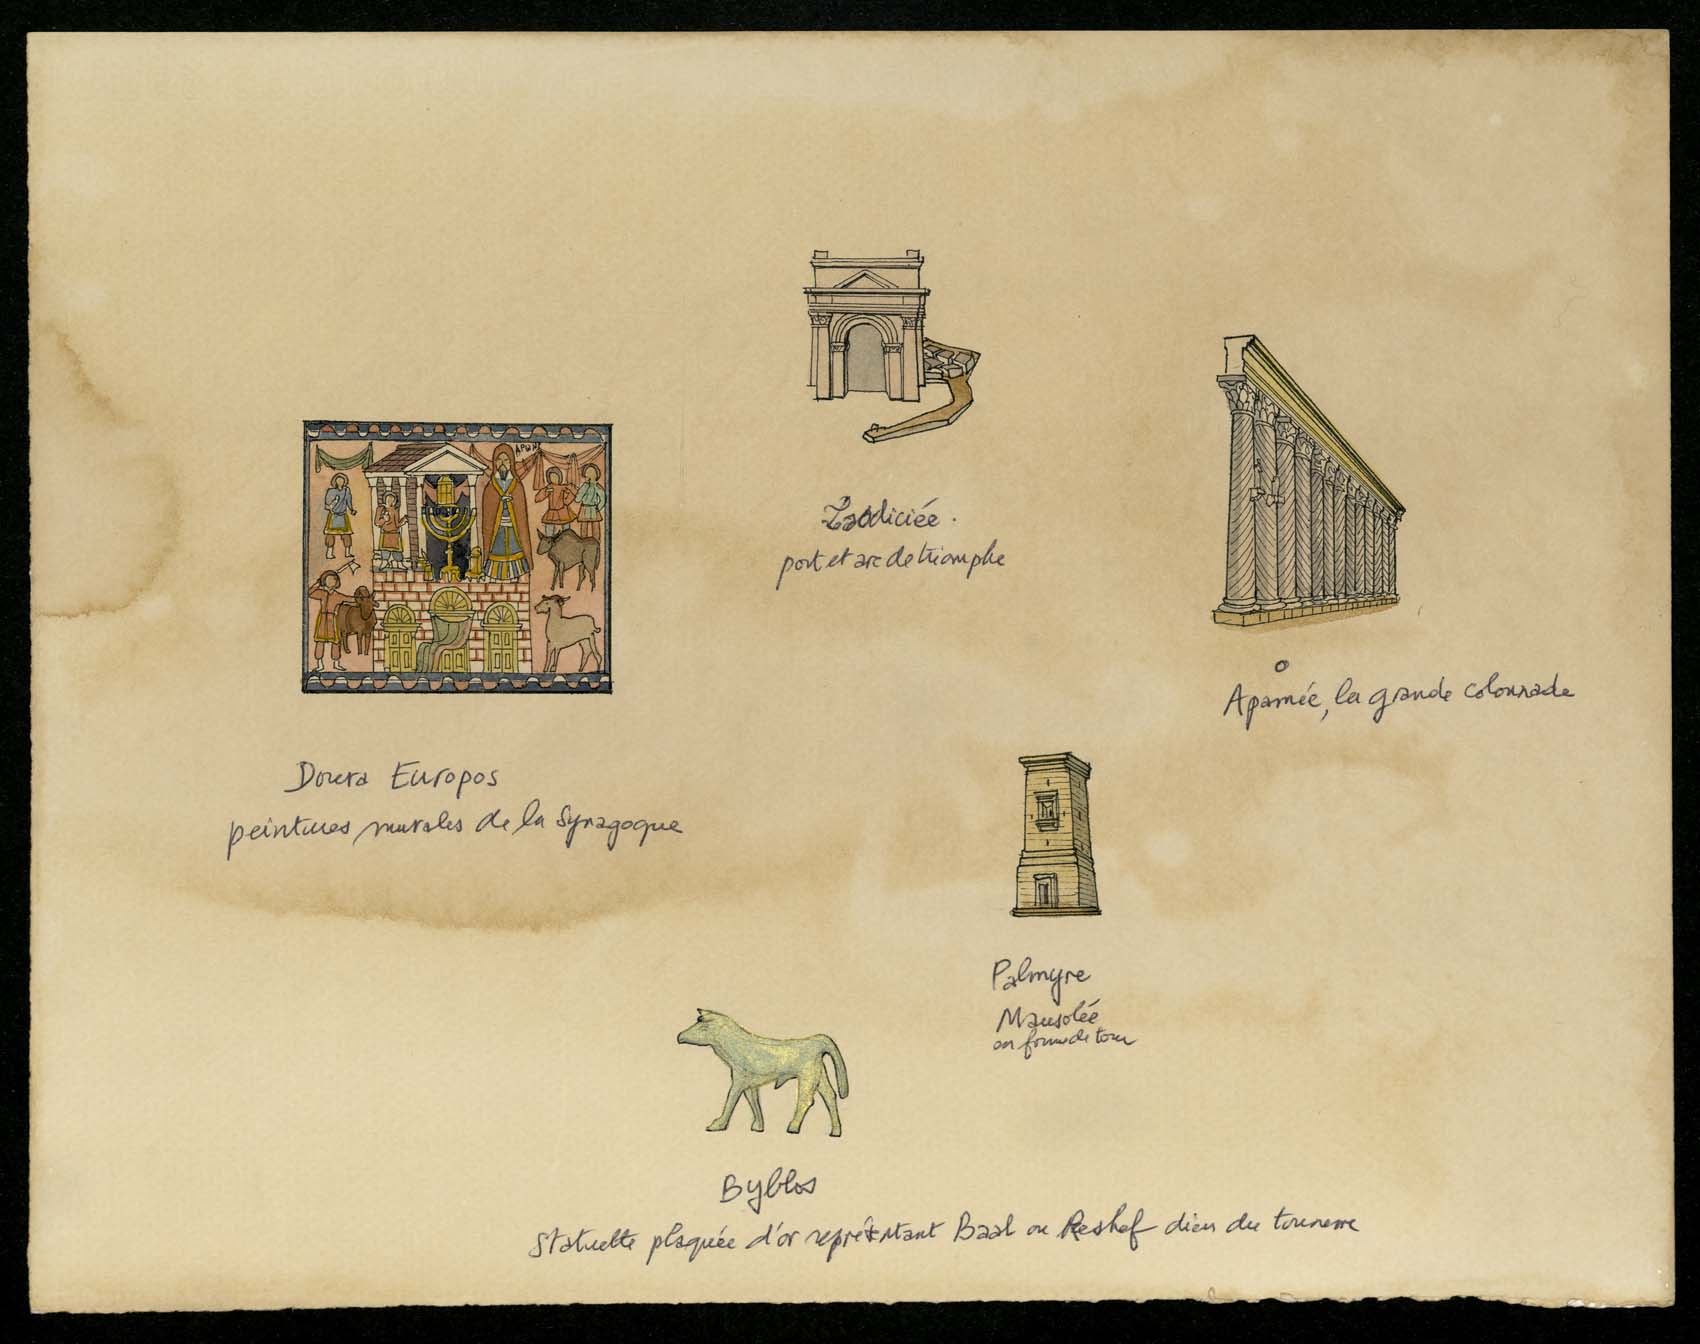 ΑΡΩΝ
Laodiciée.
port et arc de triomphe
Apamée, la grande colonnade
Doura Europos
peintures murales de la Synagogue
Palmyre
Mausolée
en forme de tour
Byblos
Statuette plaquée d'or représentant Baal ou Reshef dieu du tonnerre